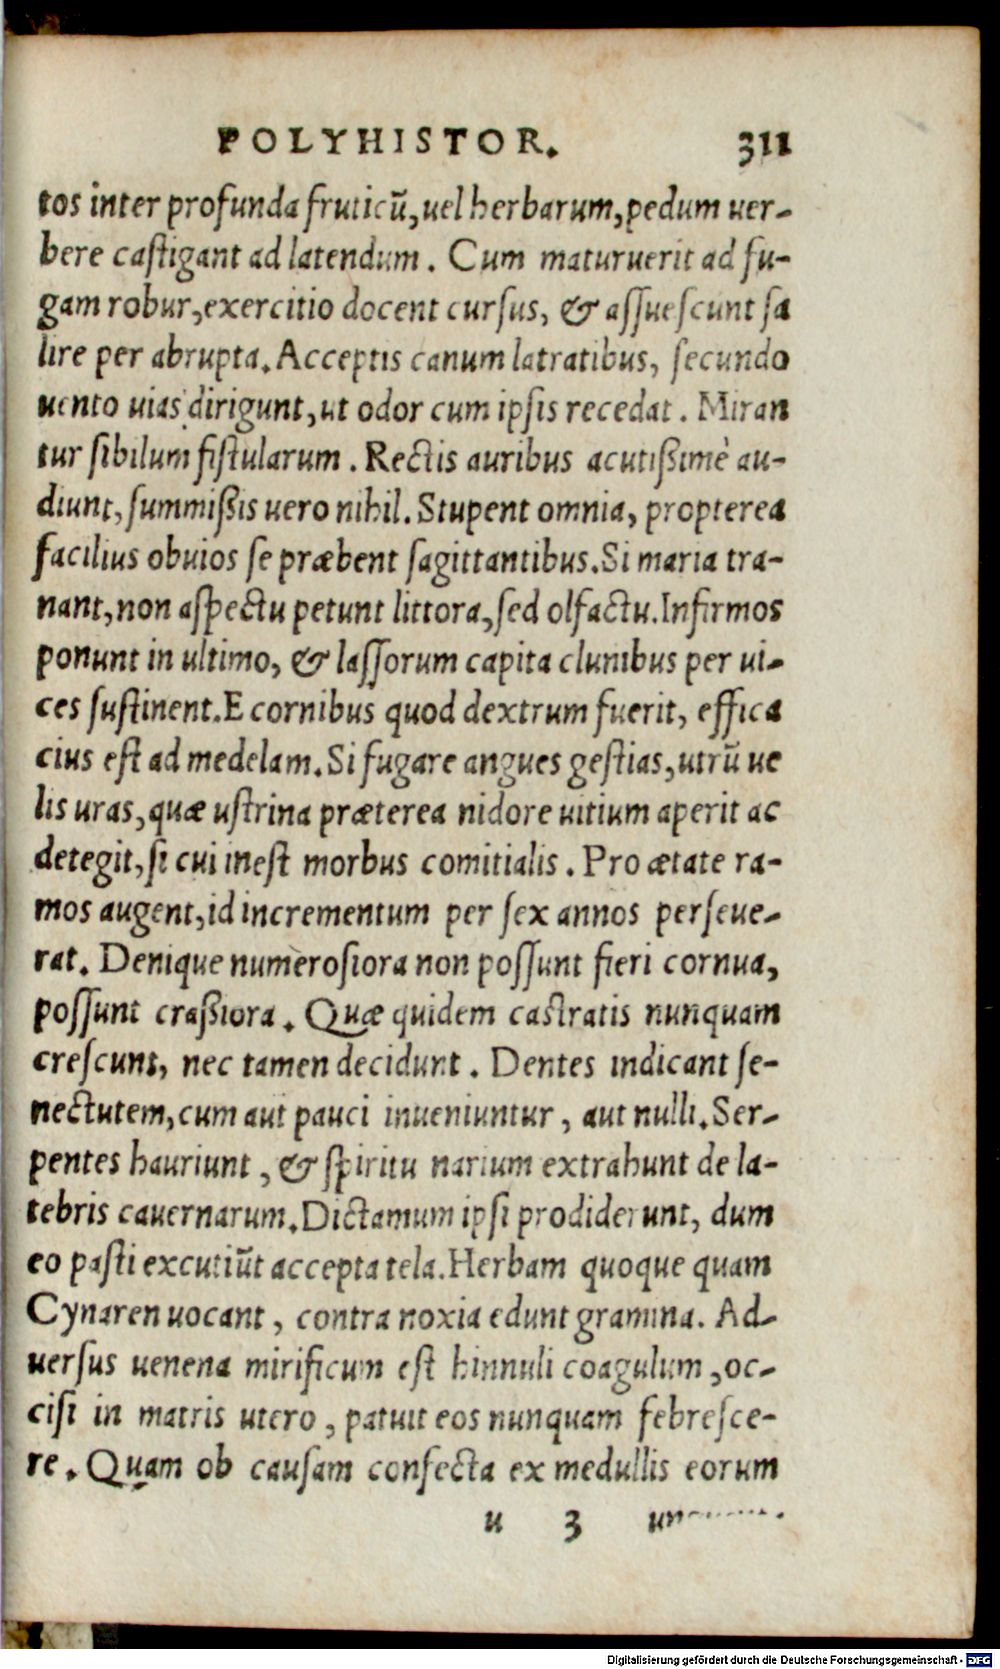 POLYHISTOR. 311
tos inter profunda fruticū, uel herbarum, pedum uer-
bere castigant ad latendum. Cum maturuerit ad fu-
gam robur, exercitio docent cursus, & assuescunt sa
lire per abrupta. Acceptis canum latratibus, secundo
uento uias dirigunt, ut odor cum ipsis recedat. Miran
tur sibilum fistularum. Rectis auribus acutißimè au-
diunt, summißis uero nihil. Stupent omnia, propterea
facilius obuios se præbent sagittantibus. Si maria tra-
nant, non aspectu petunt littora, sed olfactu. Infirmos
ponunt in ultimo, & lassorum capita clunibus per ui-
ces sustinent. E cornibus quod dextrum fuerit, effica
cius est ad medelam. Si fugare angues gestias, utrū ue
lis uras, quæ ustrina præterea nidore uitium aperit ac
detegit, si cui inest morbus comitialis. Pro ætate ra-
mos augent, id incrementum per sex annos perseue-
rat. Denique numerosiora non possunt fieri cornua,
possunt craßiora. Quæ quidem castratis nunquam
crescunt, nec tamen decidunt. Dentes indicant se-
nectutem, cum aut pauci inueniuntur, aut nulli. Ser-
pentes hauriunt, & spiritu narium extrahunt de la-
tebris cauernarum. Dictamum ipsi prodiderunt, dum
eo pasti excutiūt accepta tela. Herbam quoque quam
Cynaren uocant, contra noxia edunt gramina. Ad-
uersus uenena mirificum est hinnuli coagulum, oc-
cisi in matris utero, patuit eos nunquam febresce-
re. Quam ob causam confecta ex medullis eorum
u 3
Digitalisierung gefördert durch die Deutsche Forschungsgemeinschaft - DFG